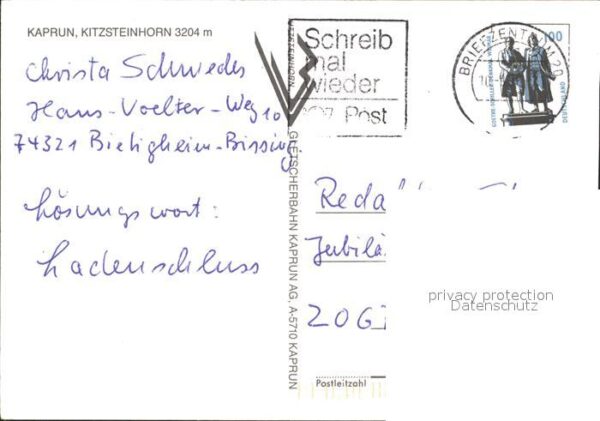 KAPRUN, KITZSTEINHORN 3204 m
Christa Schwedes
Hans-Voelter-Weg 10
74321 Bietigheim-Bissing
Lösungswort:
Ladenschluss
KITZSTEINHORN
GLETSCHERBAHN KAPRUN AG, A-5710 KAPRUN
Schreib
mal
wieder
Post
BRIEFZENTRUM 20
100
Reda
Jubilä
2067
Postleitzahl
privacy protection
Datenschutz